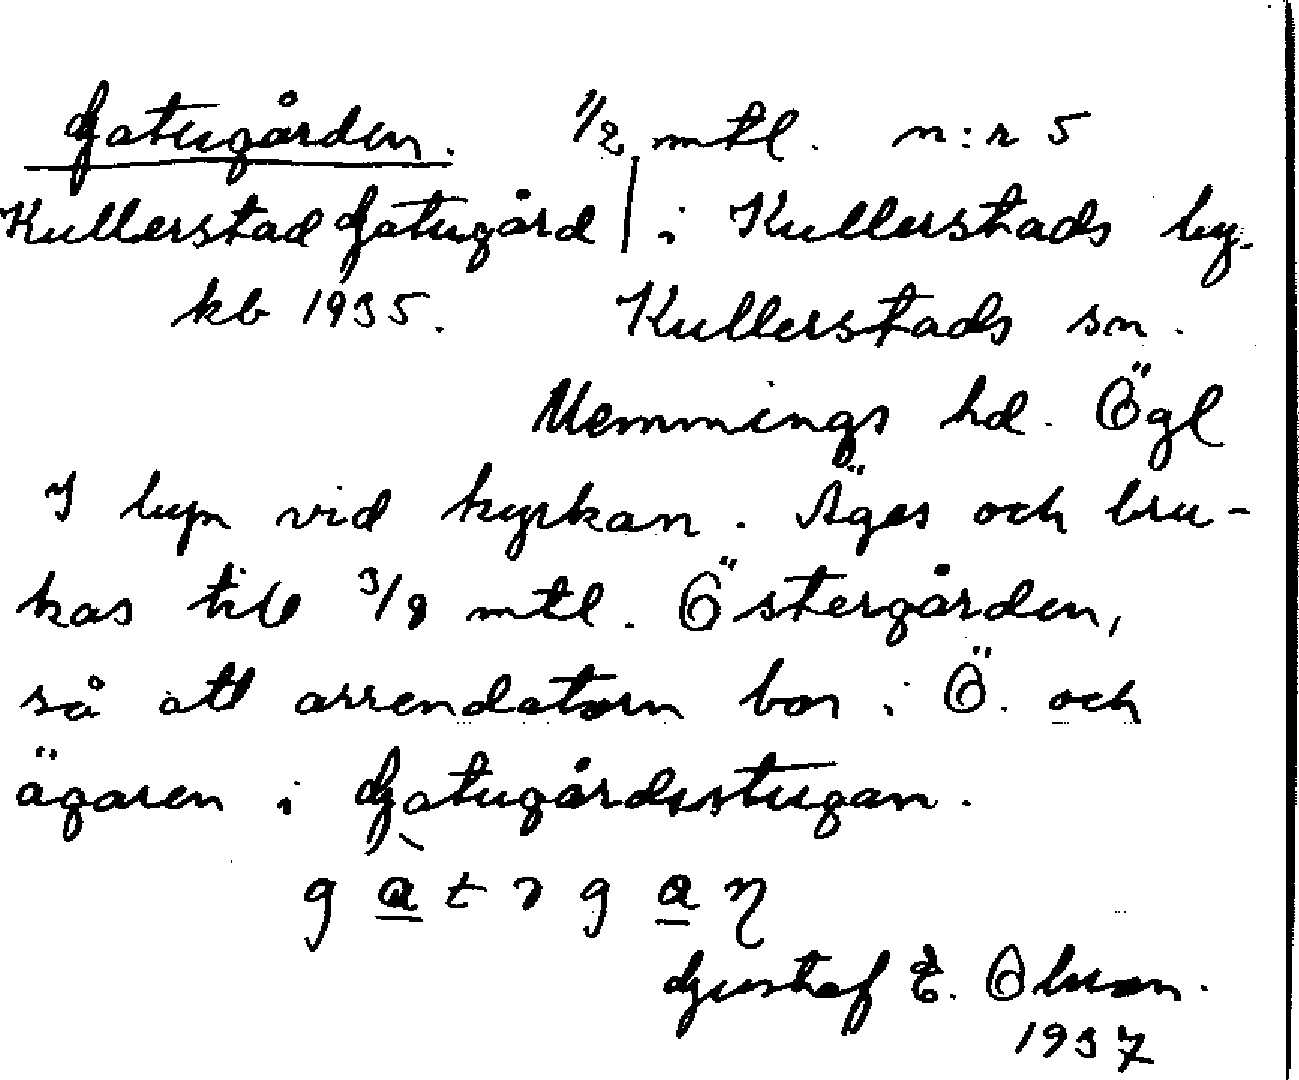 Gatugården. 1/2 mtl. n:r 5
Kullerstad Gatugård | i Kullerstads by.
kb 1935. Kullerstads sn.
Memmings hd. Ögl
I byn vid kyrkan. Äges och bru-
kas till 3/8 mtl. Östergården,
så att arrendatorn bor i Ö. och
ägaren i Gatugårdsstugan.
Gustaf E. Olsson.
1937